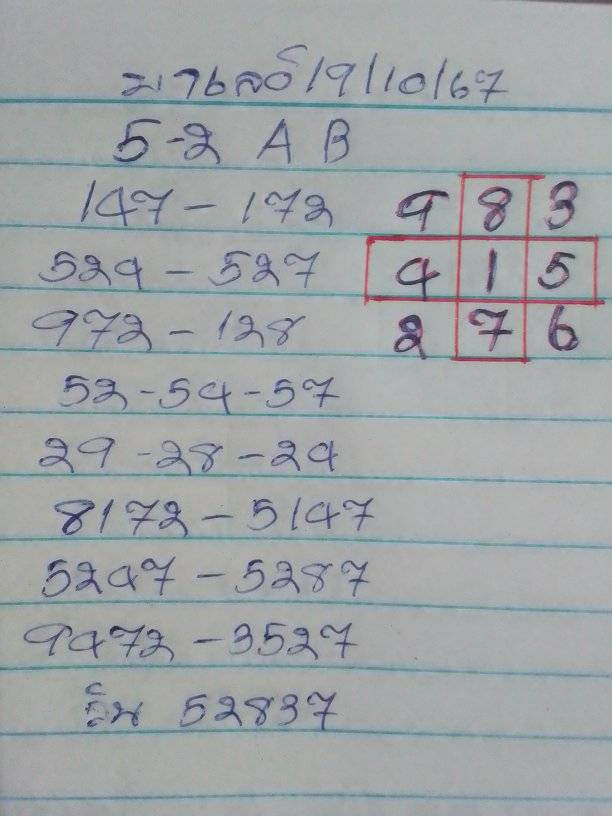 มาเลย์ 19/10/67
5-2 A B
147 - 172
524 - 527
972 - 128
52 - 54 - 57
29 - 28 - 24
8172 - 5147
5247 - 5287
9472 - 3527
วิน 52837
9 8 3
4 1 5
2 7 6